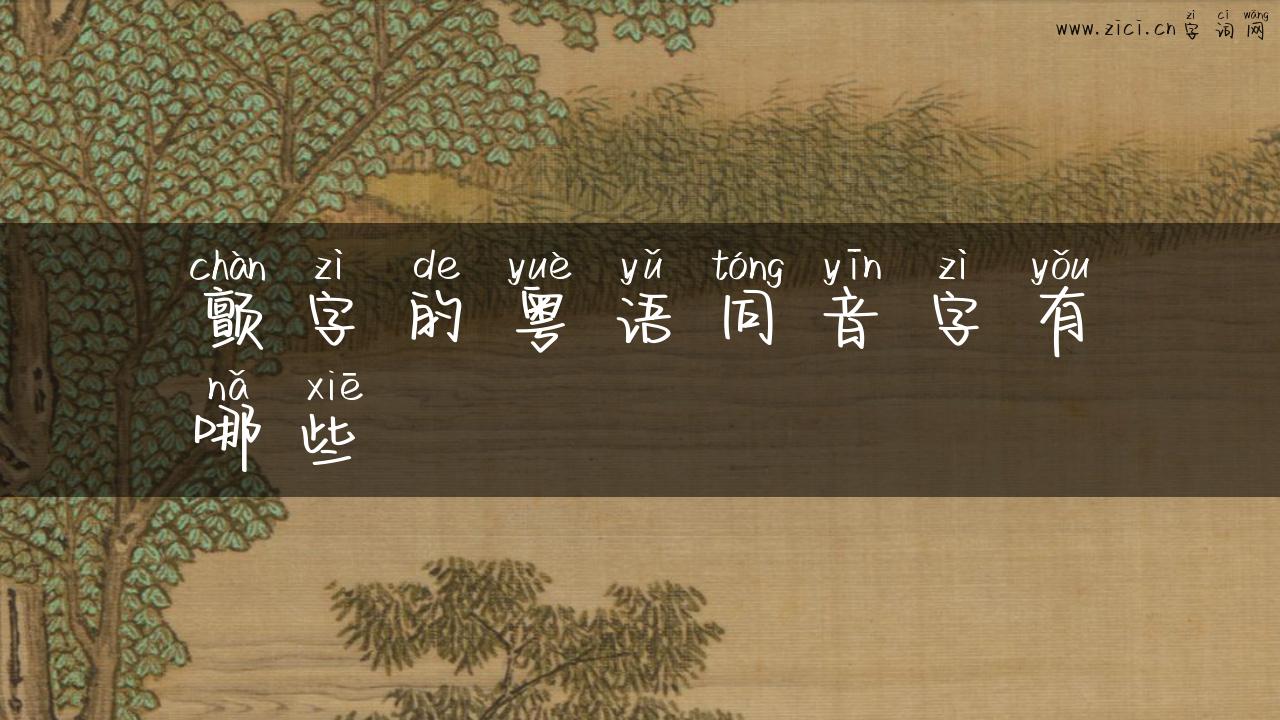 zì cí wǎng
www.zici.cn字词网
chàn zì de yuè yǔ tóng yīn zì yǒu
颤字的粤语同音字有
nǎ xiē
哪些